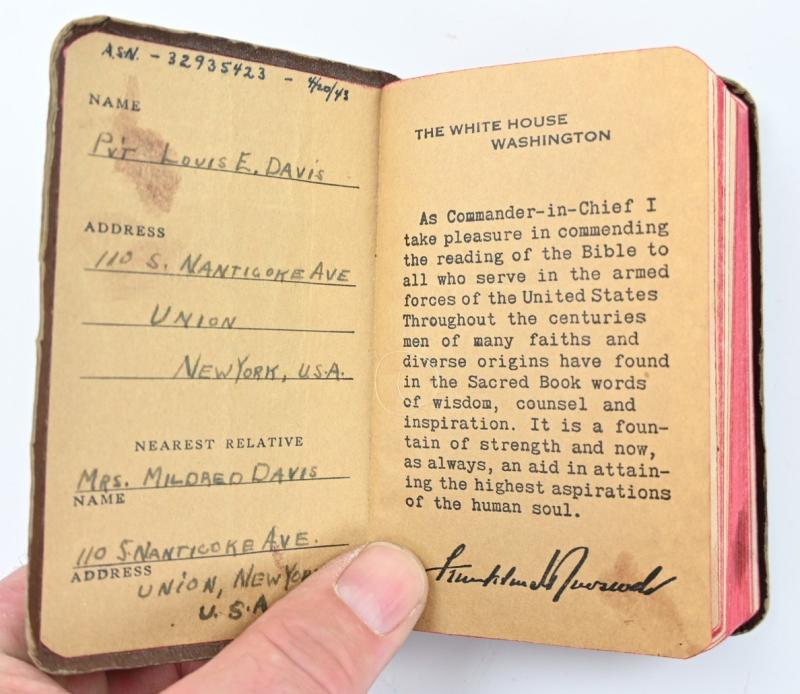 ASN. - 32935423 - 4/20/43
NAME
Pvt Louis E. Davis
ADDRESS
110 S. Nanticoke Ave
Union
New York, U.S.A.
NEAREST RELATIVE
Mrs. Mildred Davis
NAME
110 S. Nanticoke Ave.
ADDRESS
Union, New Yor
U.S.A
THE WHITE HOUSE
WASHINGTON
As Commander-in-Chief I
take pleasure in commending
the reading of the Bible to
all who serve in the armed
forces of the United States
Throughout the centuries
men of many faiths and
diverse origins have found
in the Sacred Book words
of wisdom, counsel and
inspiration. It is a foun-
tain of strength and now,
as always, an aid in attain-
ing the highest aspirations
of the human soul.
Franklin D Roosevelt